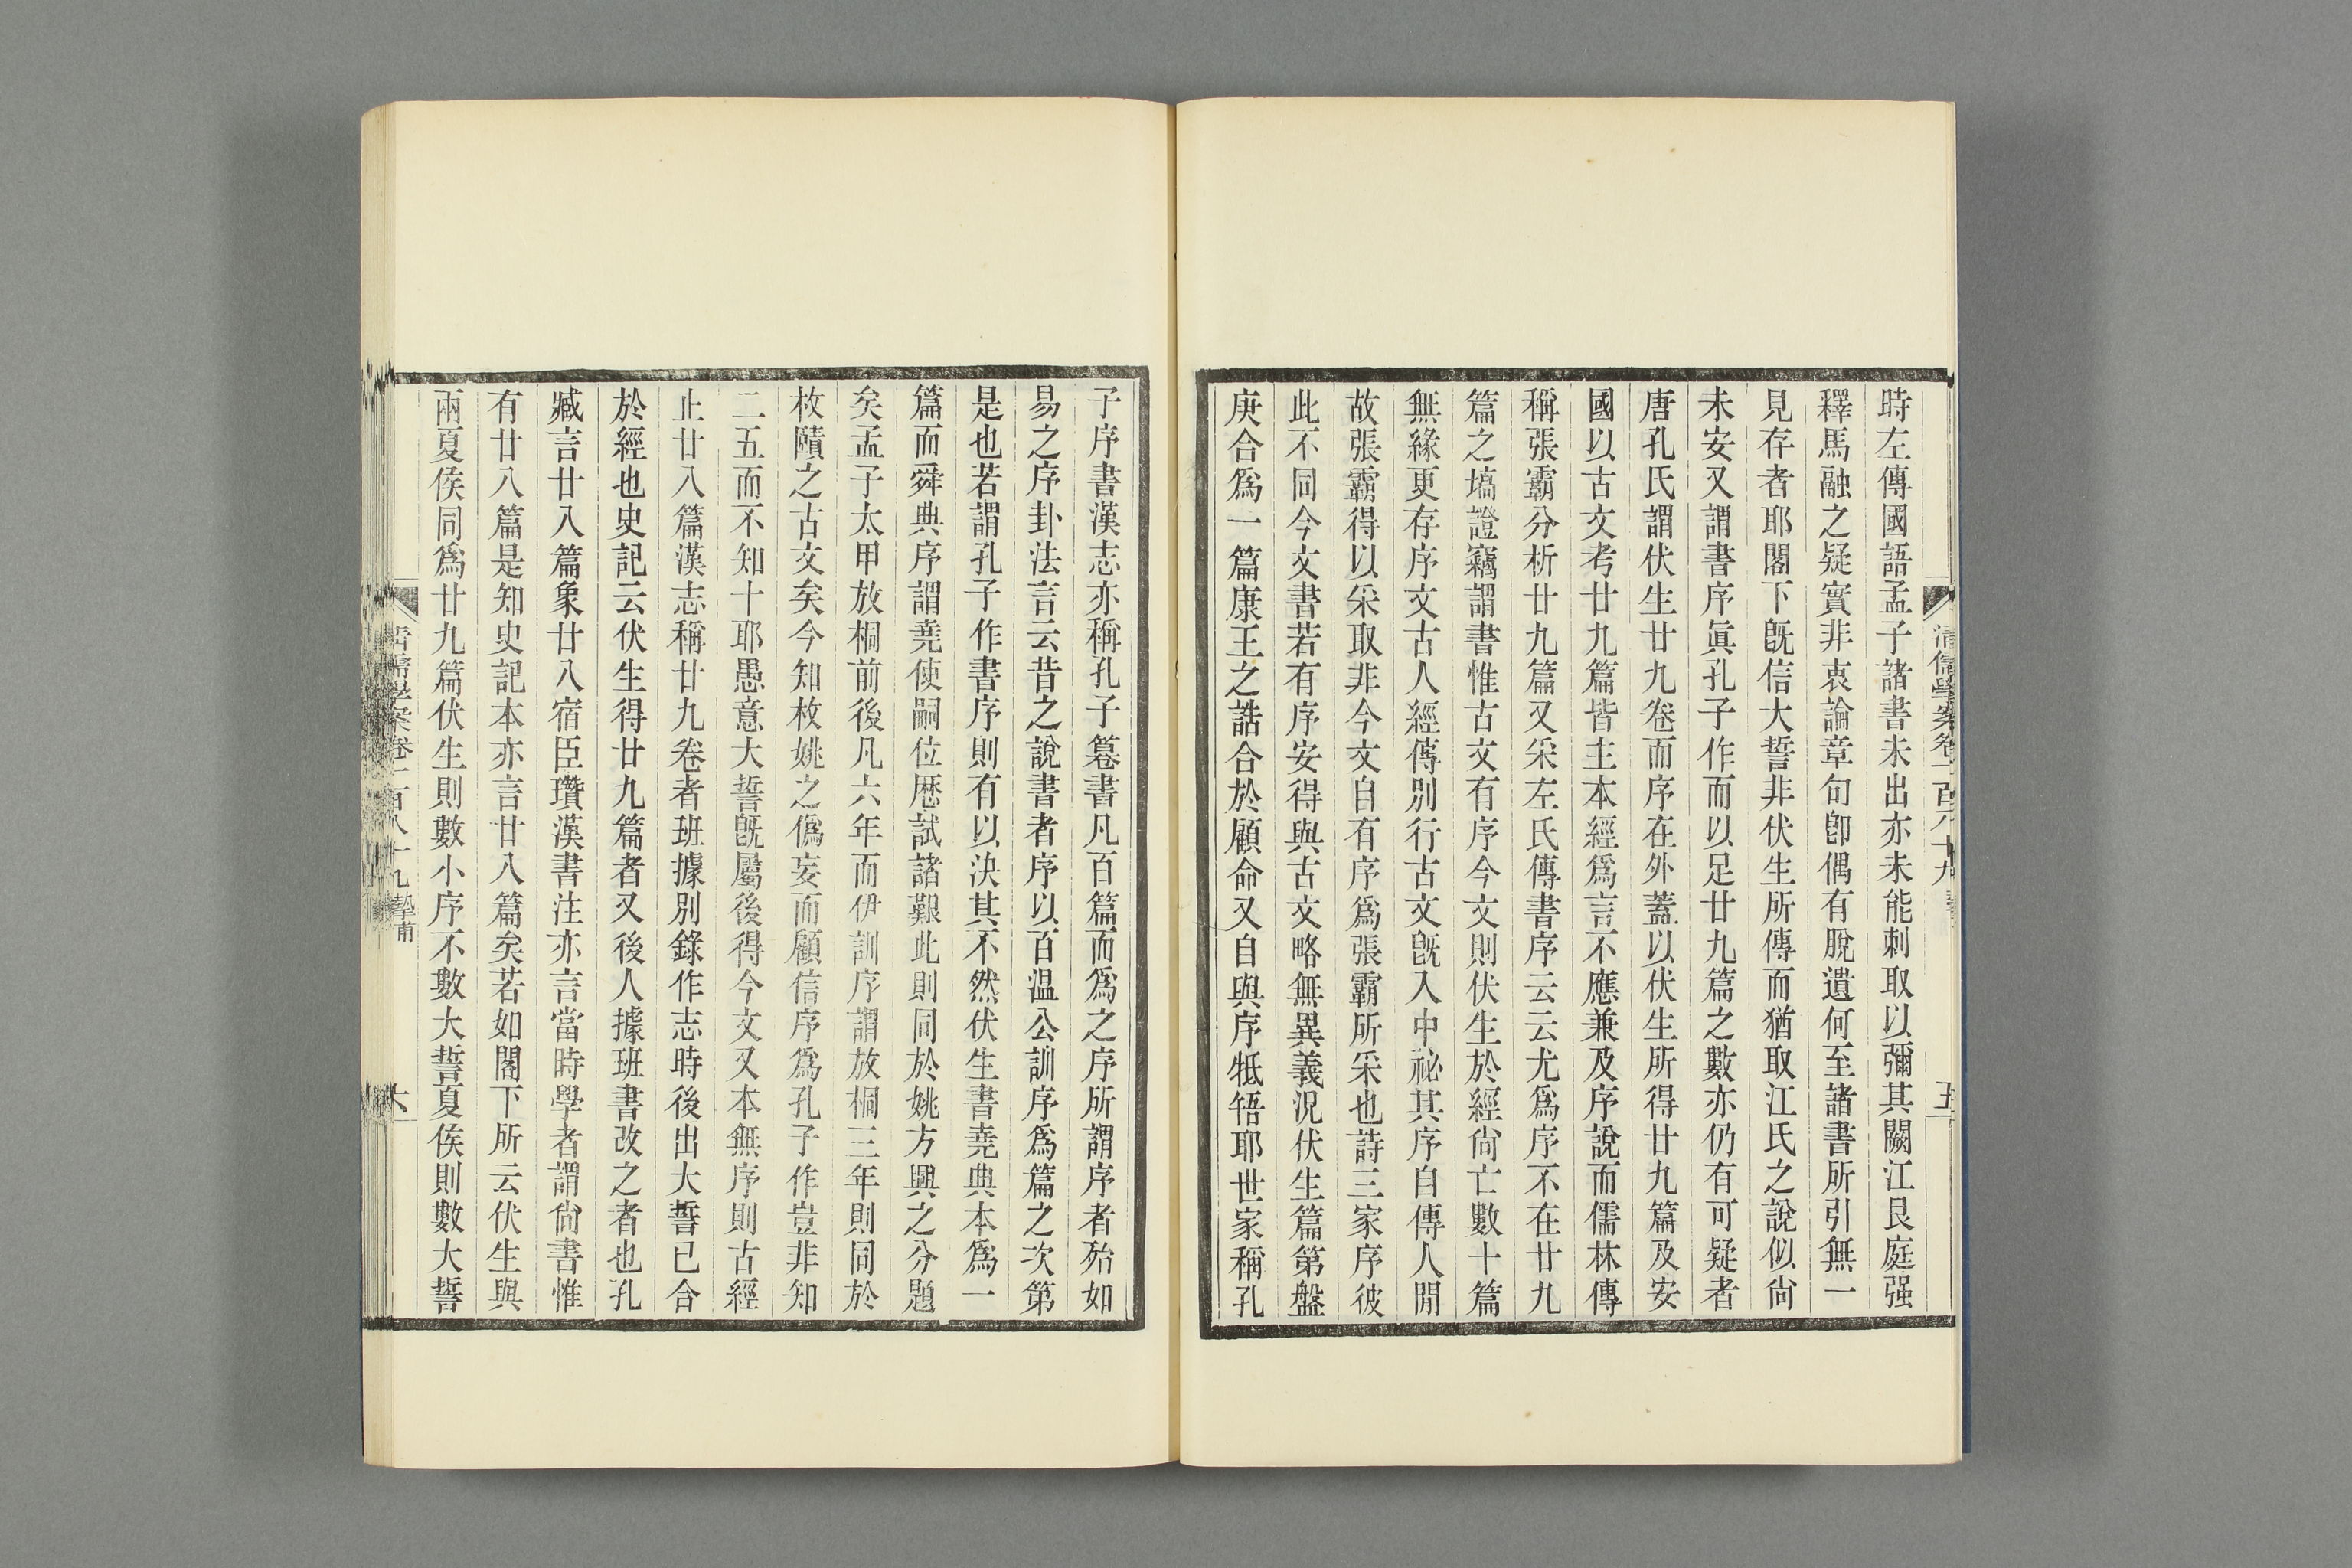 時左傳國語孟子諸書未出亦未能刺取以彌其闕江艮庭强
釋馬融之疑實非衷論章句卽偶有脫遺何至諸書所引無一
見存者耶閣下旣信大誓非伏生所傳而猶取江氏之說似尙
未安又謂書序眞孔子作而以足廿九篇之數亦仍有可疑者
唐孔氏謂伏生廿九卷而序在外蓋以伏生所得廿九篇及安
國以古文考廿九篇皆主本經爲言不應兼及序說而儒林傳
稱張霸分析廿九篇又采左氏傳書序云云尤爲序不在廿九
篇之塙證竊謂書惟古文有序今文則伏生於經尙亡數十篇
無緣更存序文古人經傳別行古文旣入中祕其序自傳人閒
故張霸得以采取非今文自有序爲張霸所采也詩三家序彼
此不同今文書若有序安得與古文略無異義況伏生篇第盤
庚合爲一篇康王之誥合於顧命又自與序牴牾耶世家稱孔
子序書漢志亦稱孔子篹書凡百篇而爲之序所謂序者殆如
易之序卦法言云昔之說書者序以百温公訓序爲篇之次第
是也若謂孔子作書序則有以決其不然伏生書堯典本爲一
篇而舜典序謂堯使嗣位歷試諸艱此則同於姚方興之分題
矣孟子太甲放桐前後凡六年而伊訓序謂放桐三年則同於
枚賾之古文矣今知枚姚之僞妄而顧信序爲孔子作豈非知
二五而不知十耶愚意大誓旣屬後得今文又本無序則古經
止廿八篇漢志稱廿九卷者班據別錄作志時後出大誓已合
於經也史記云伏生得廿九篇者又後人據班書改之者也孔
臧言廿八篇象廿八宿臣瓚漢書注亦言當時學者謂尙書惟
有廿八篇是知史記本亦言廿八篇矣若如閣下所云伏生與
兩夏侯同爲廿九篇伏生則數小序不數大誓夏侯則數大誓